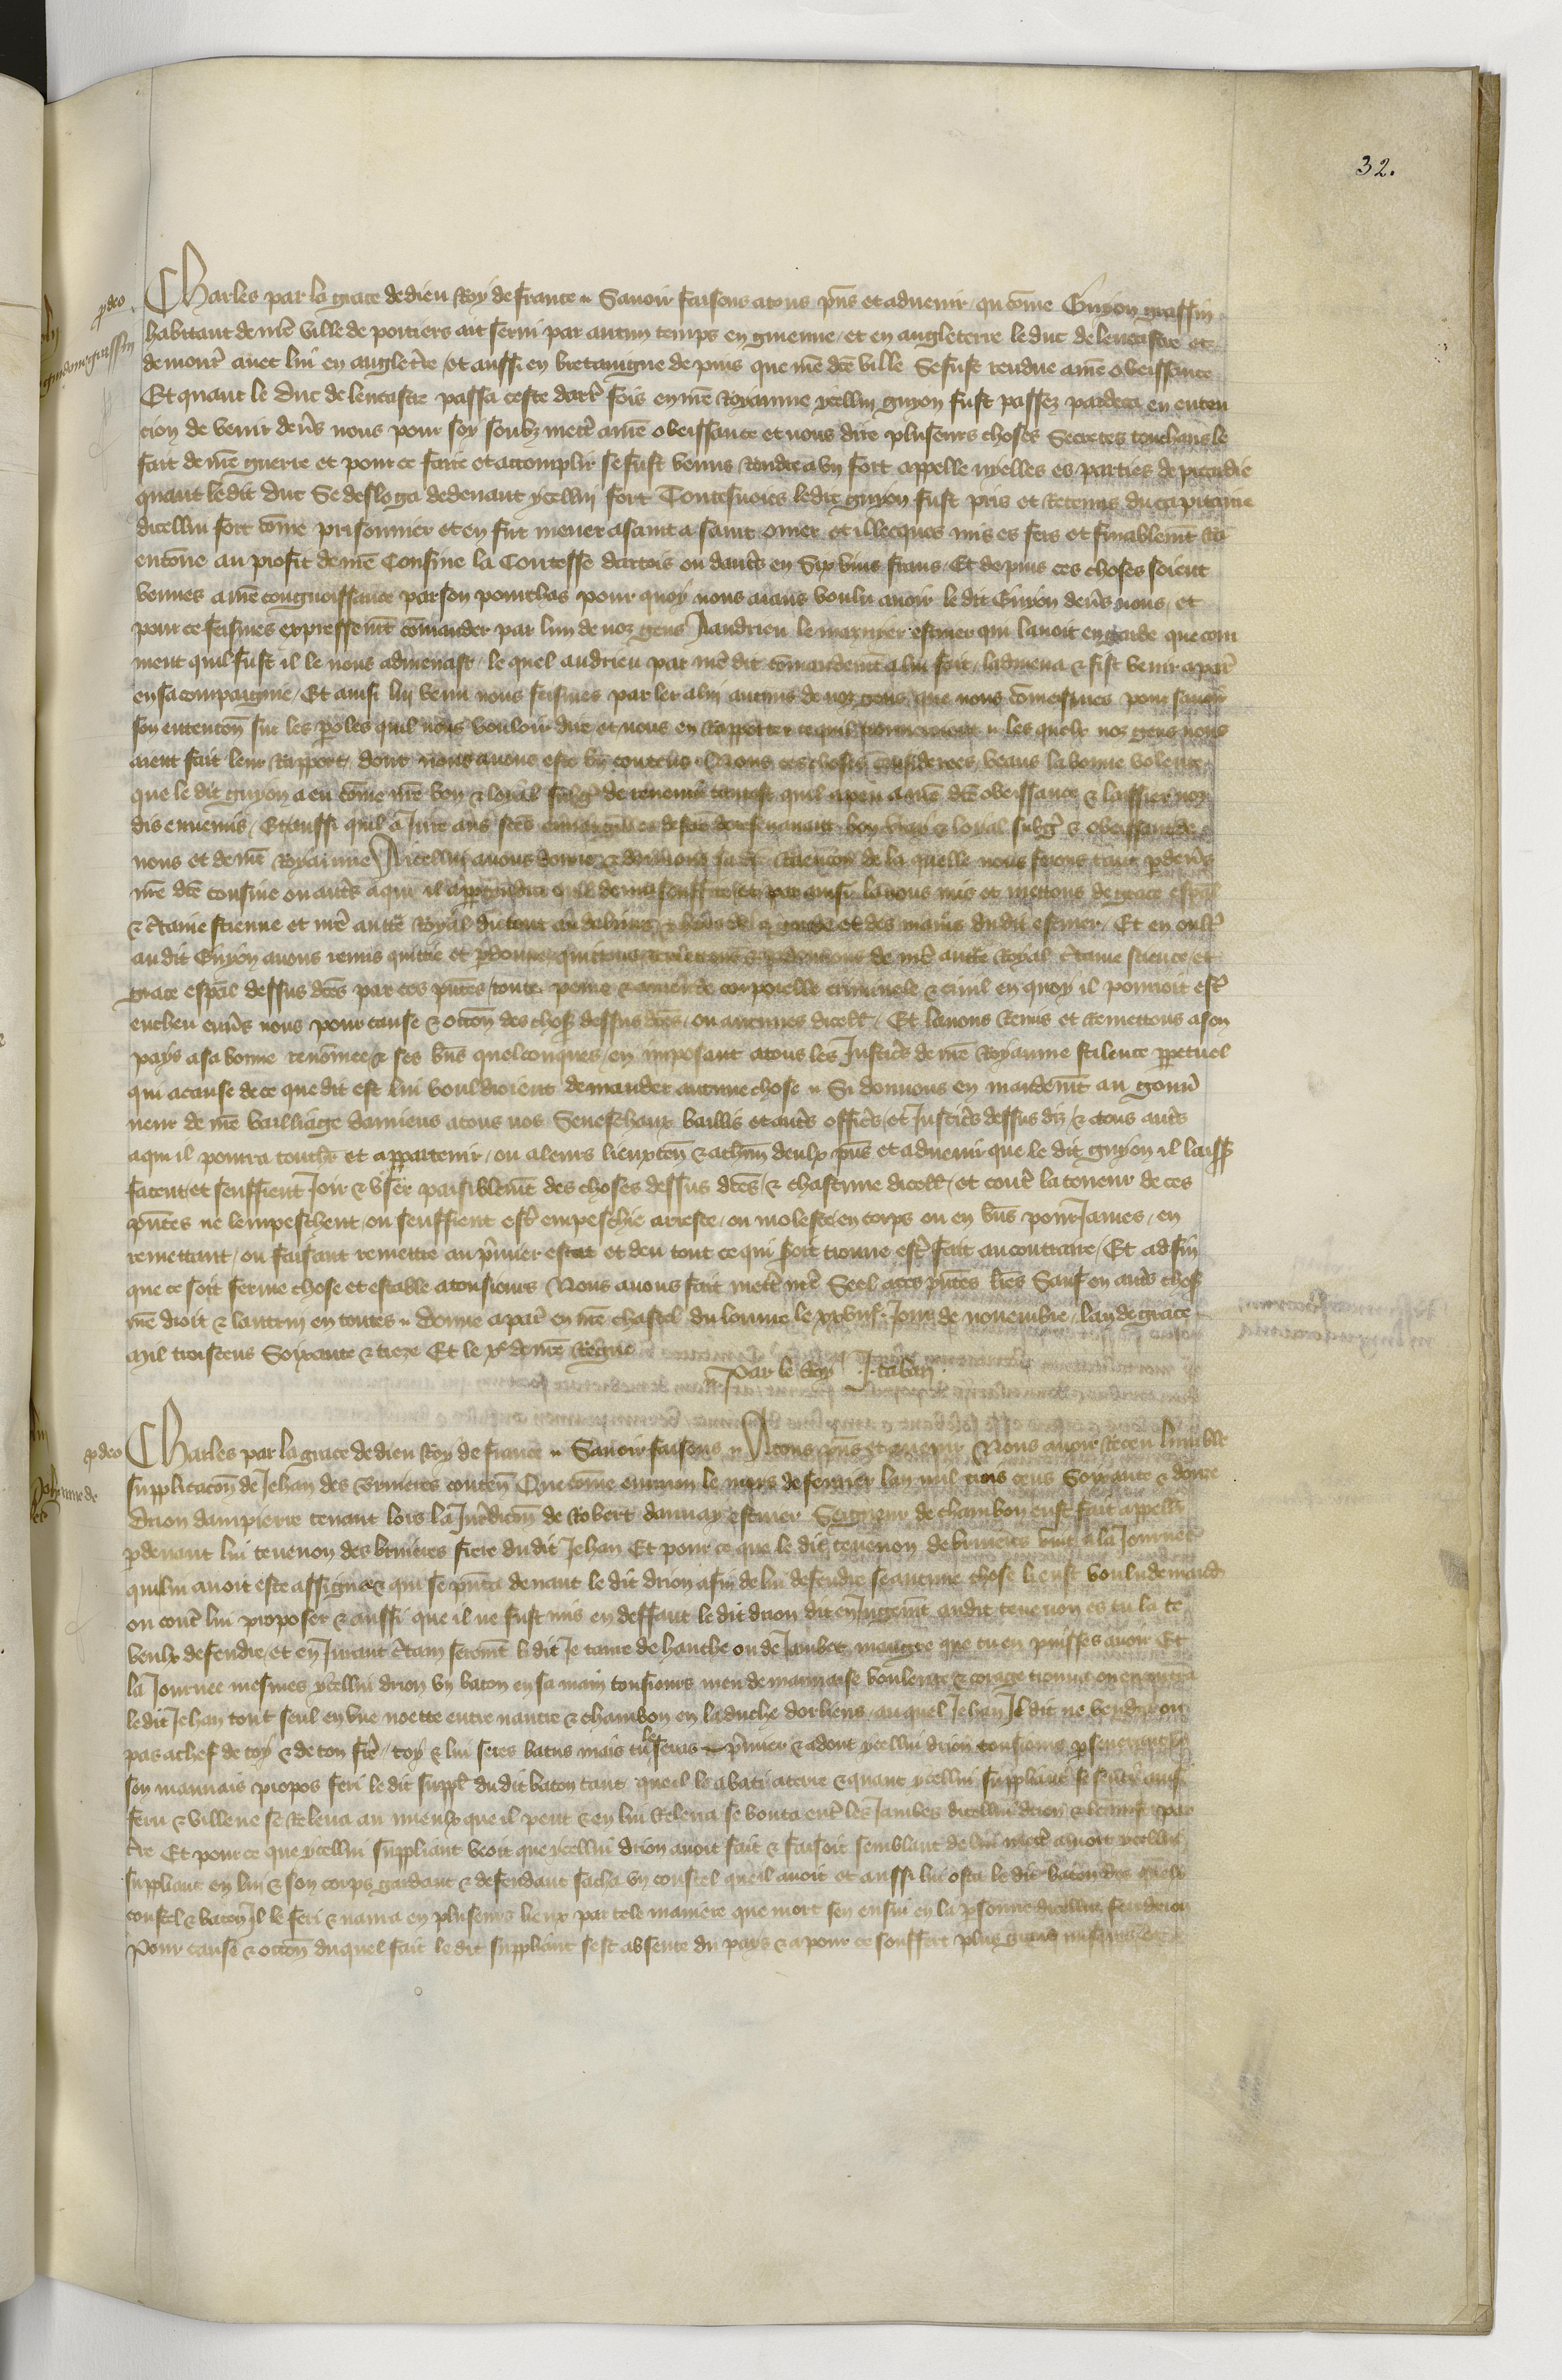 32.
Charles par la grace de dieu Roy de france Savoir faisons a tous pñs et advenir qu cõme Guyon grassin
habitant de nr̃e ville de poitiers ait servi par aucun temps en guienne et en angleterre le duc de lencastre et
demour̃ avec lui en anglet̃re et aussi en bretaingne depuis que nr̃e dcẽ ville Se fust rendue a nr̃e obeissance
Et quant le duc de lencastre passa ceste fois en nr̃e Royaume ycellui guyon fust passez pardeca en enten
cion de venir dev̾s nous pour soy soubz mect̃ a nr̃e obeissance et nous dire pluseurs choses Secretes touchans le
fait de nr̃e guerre et pour ce faire et acomplir se fust venus Rendre a un fort appelle nyelles es parties de picardie
quant le dit duc Se desloga de devant ycellui fort Toutesvoies le dit guyon fust pris et Retenus du capitaine
dicellui fort cõme prisonnier et en fut mener a saint omer et illecques mis es fers et finablemẽt
enconne au profit de nr̃e Cousine la Contesse dartois ou daut̃s en Six vins frans Et depuis ces choses soient
venues a nr̃e congnoissance par son pourchas pour quoy nous aians voulu avoir le dit Guyon dev̾s nous et
pour ce feismes expressemẽt cõmander par lun de noz gens A andrieu le maynier escuier qui lavoit en garde que com
ment quil fust il le nous admenast le quel andrieu par nr̃e dit cõmandemẽt a lui fait ladmena & fist venir a par̃
en sa compaignie Et ainsi lui venu nous feismes parler a lui aucuns de noz gens que nous cõmeismes pour savoir
son entencõn sur les p̃oles quil nous vouloit dire et nous en Rapporter ce quil trouveroient les quelx noz gens nous
aient fait leur Rapport dont nous avons este bñ contens Nous ces choses considerees veans la bonne volente
que le dit guyon a eu cõme nr̃e bon & loial subgt̃ de revenir tantost quil a peu a nr̃e dcẽ obeissance & laissier noz
dis ennemis Et aussi quil a Jure aus s̃ces euvangilles destre doresenavant bon vray & loyal subgt̃ & obeissant de
nous et de nr̃e Royaume A icellui avons donne & donnons sa dcẽ Raencon de la quelle nous ferons tant p̃devers
nr̃e dcẽ cousine ou aut̃s a qui il app̃tendra quil devra souffire et par ainsi lavons mis et mettons de grace esp̃al
& c̃taine science et nr̃e auct̃e Royal du tout au delivre & hors de la garde et des mains du dit escuier Et en oult̃
au dit Guyon avons remis quittie et p̃donne quittons remetons & pardonnons de nr̃e auct̃e Royal c̃taine science et
grace esp̃al dessus dcẽs par ces pñtes toute peine & amende corporelle criminele & civil en quoy il pourroit est̃
encheu env̾s nous pour cause & occõn des choses dessus dcẽs ou aucunes dicell̃ Et lavons Remis et Remettons a son
pays a sa bonne renõmee & ses bñs quelconques en imposant a tous les Justic̃s de nr̃e Royaume silence perpetuel
qui a cause de ce que dit est lui vouldroient demander aucune chose Si donnons en mandemẽt au gouv̾
neur de nr̃e bailliage damiens a tous nos Seneschaux baillis et aut̃s offic̃s et Justic̃s dessus diz & a tous aut̃s
a qui il pourra touch̃r et appartenir ou a leurs lieuxten̄ & a ch̃m deulx pñs et advenir que le dit guyon il laiss̃
facent et seuffrent Joir & user paisiblemẽt des choses dessus dcẽs & chascune dicell̃ et cont̃ la teneur de ces
pñtes ne lempeschent ou seuffrent est̃ empeschie arreste ou moleste en corps ou en bñs pour James en
remettant ou faisant remettre au p̃mier estat et deu tout ce qui seroit trouve est̃ fait au contraire Et ad fin
que ce soit ferme chose et estable a tousiours Nous avons fait mect̃ nr̃e Seel a ces pñtes lr̃es Sauf en aut̃s choses
nr̃e droit & lautrui en toutes donne a par̃ en nr̃e chastel du louvre le Jour de novembre lan de grace
mil troiscens Soixante & treze Et le xe de nr̃e Regne
Par le Roy J. tabari

Charles par la grace de dieu Roy de france Savoir faisons A tous pñs et avenir Nous avoir Receu lumble
supplicacõn de Jehan des bruieres conten̄ Que cõme environ le mois de fevrier lan mil trois cens Soixante & douze
drion dampierre tenant lors la Jurdicõn de Robert daunay escuier Seigneur de chambon eust fait appell̃r
p̃devant lui tevenon des bruieres frere du dit Jehan Et pour ce que le dit tevenon de bruieres vint a la Journee
qui lui avoit este assignee & qui se pñta devant le dit drion afin de lui defendre se aucune chose li eust voulu demand̃
ou cont̃ lui proposer & aussi que il ne fust mis en deffaut le dit drion dit en Jugemẽt au dit tevenon es tu la te
veulx defendre et en Jurant c̃tain seremẽt li dit Je taure de hanche ou de Jambet maugre que tu en puisses avoir Et
la Journee mesmes ycellui drion un baton en sa main tousiours meu de mauvaise voulente & corage trouva ou encontra
le dit Jehan tout seul en une noette entre nancre & chambon en la duche dorliens au quel Jehan Il dit ne vendra on
pas a chef de toy & de ton fre̾ toy & lui seres batus mais tu le seras p̃mier & adont ycellui drion tousiours perseverant en
son mauvais propos feri le dit suppl̃ du dit baton tant que il le abati a terre & quant ycellui suppliant se senti ainsi
feru & villene se Releva au mieulx que il peut & en lui Releva se bouta ent̃ les Jambes dicellui drion & par
t̃re Et pour ce que ycellui suppliant veoit que ycellui drion avoit fait & faisoit semblant de lui mect̃ a mort ycellui
suppliant en lui & son corps gardant & defendant sacha un coustel que il avoit et aussi lui osta le dit baton des quelx
coustel & baton Il le feri & navra en pluseurs lieux par tele maniere que mort sen ensui en la p̃sonne dicellui feu drion
Pour cause & occõn du quel fait le dit suppliant sest absente du pays & a pour ce souffert plus grans